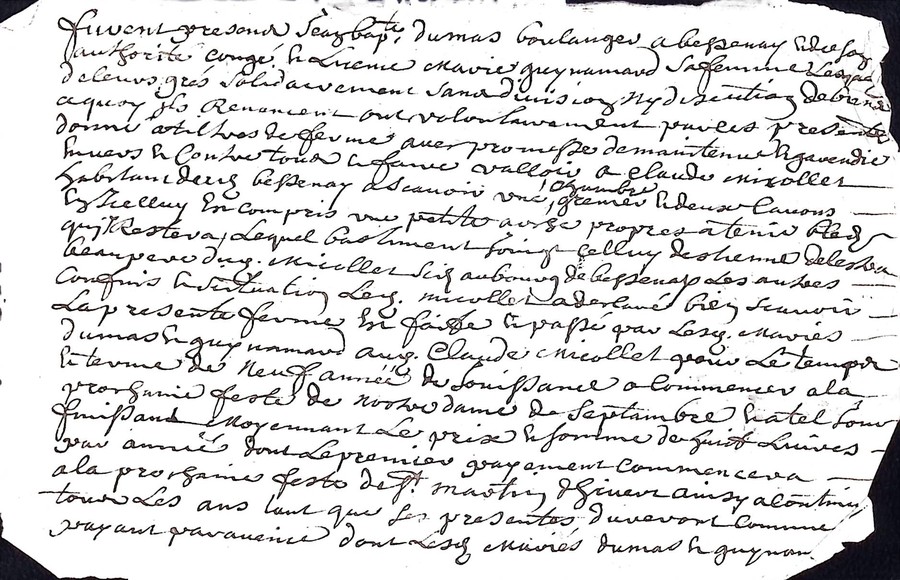 furent presend Jean bapte dumas boulanger a bessenay & de son
authorité congé & licence marie guynamard sa femme Lesquels
de leurs grés solidairement sans division ny discution de biens
a quoy ils Renoncent ont volontairement par ces presentes
donné a tiltre de ferme avec promesse de maintenir & garendir
envers & contre tous & faire valloir a Claude micollet
habitant dud. bessenay a scavoir une chambre, grenier & deux
en icelluy y compris une petite propres a tenir
qui Restera, Lequel bastiment joint celluy d'estienne
beaupere dud. micollet sis au bourg de bessenay Les autres
confins & scituation Led. micollet a declaré bien scavoir
La presente ferme est faitte & passé par Lesd. mariés
dumas & guynamard aud. Claude micollet pour Le temps
& terme de neuf année de jouissance a commencer a la
prochaine feste de nostre dame de septambre & a tel jour
finissant moyennant Le prix & somme de huit Livres
par année dont Le premier payement commencera
a la prochaine feste de st. martin d'hiver ainsy a continuer
tous Les ans tant que Les presentes dureront comme
payant par avance dont Lesd. mariés dumas & guynam.